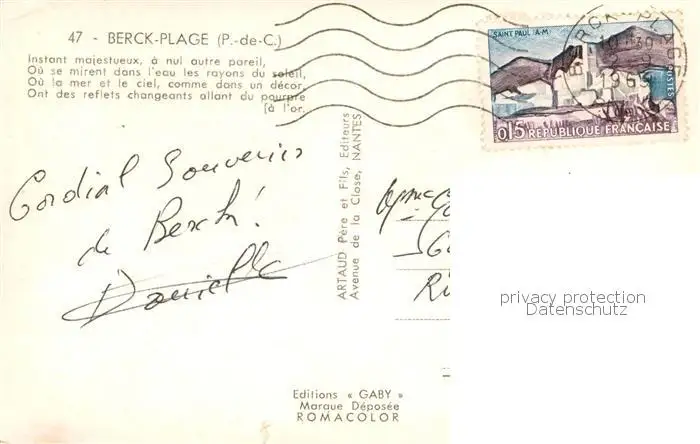 47 - BERCK-PLAGE (P.-de-C.)
Instant majestueux, à nul autre pareil,
Où se mirent dans l'eau les rayons du soleil,
Où la mer et le ciel, comme dans un décor,
Ont des reflets changeants allant du pourpre
[à l'or.
Cordial Souvenir
de Berck!
Danielle
ARTAUD Père et Fils, Editeurs
Avenue de la Close, NANTES
SAINT PAUL (A-M)
POSTES
0,15 RÉPUBLIQUE FRANÇAISE
BERCK PLAGE
1965
privacy protection
Datenschutz
Editions « GABY »
Marque Déposée
ROMACOLOR